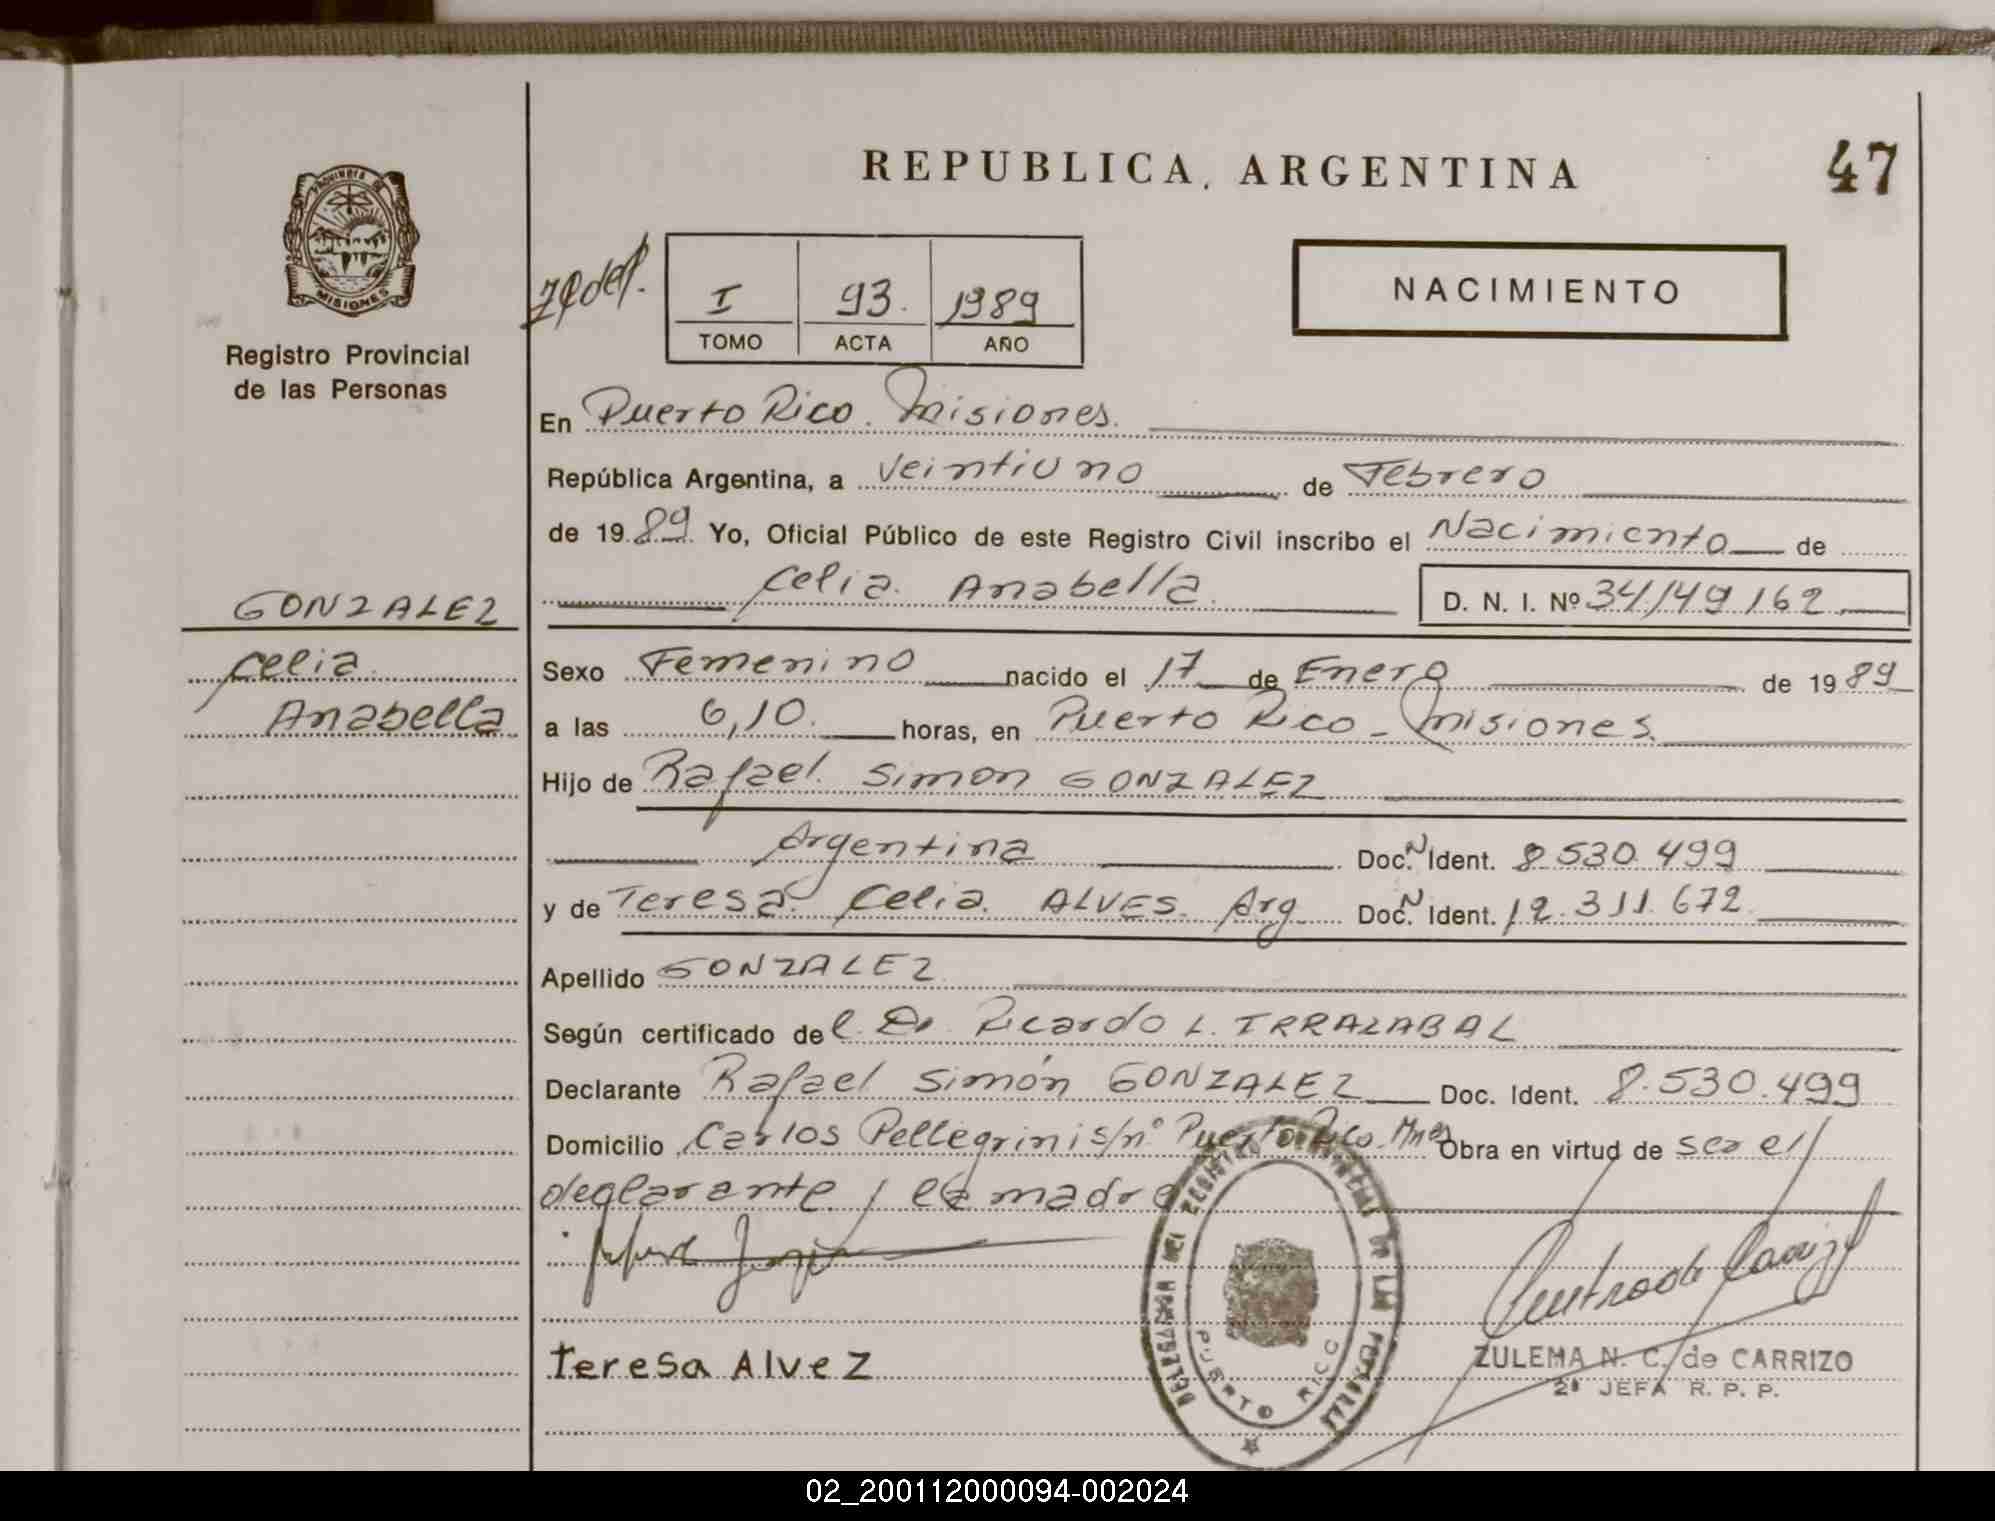 REPUBLICA ARGENTINA
47
PROVINCIA DE
MISIONES
Registro Provincial
de las Personas
I 93. 1989
TOMO ACTA AÑO
NACIMIENTO
En Puerto Rico. Misiones.
República Argentina, a veintiuno de Febrero
de 1989 Yo, Oficial Público de este Registro Civil inscribo el Nacimiento de
Celia Anabella D. N. I. Nº 34/149162
GONZALEZ
Celia
Anabella
Sexo Femenino nacido el 17 de Enero de 1989
a las 6,10. horas, en Puerto Rico - Misiones.
Hijo de Rafael Simon GONZALEZ
Argentina Doc. N Ident. 8.530.499
y de Teresa Celia ALVES. Arg Doc. N Ident. 12.311.672
Apellido GONZALEZ
Según certificado del Dr. Ricardo L. IRRAZABAL
Declarante Rafael Simón GONZALEZ Doc. Ident. 8.530.499
Domicilio Carlos Pellegrini s/nº Puerto Rico. Mnes Obra en virtud de ser el/
declarante / la madre
Teresa Alvez
DELEGACION DEL REGISTRO PROVINCIAL DE LAS PERSONAS
PUERTO RICO
ZULEMA N. C. de CARRIZO
2ª JEFA R. P. P.
02_200112000094-002024